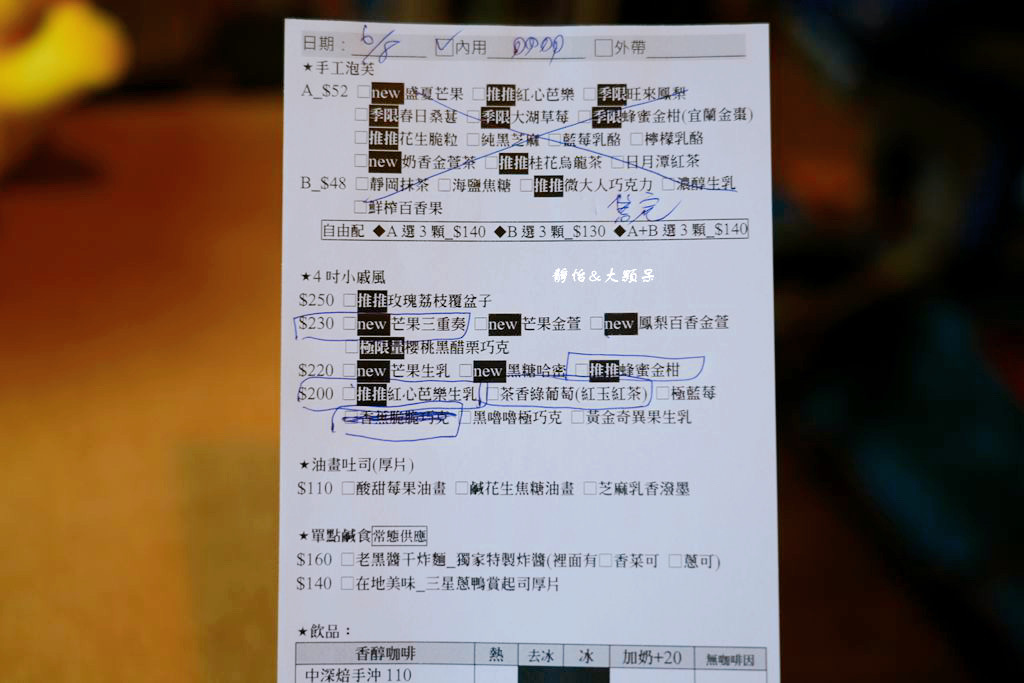 日期：6/8 ☑內用 □外帶
★手工泡芙
A_$52 □new盛夏芒果 □推推紅心芭樂 □季限旺來鳳梨
□季限春日桑葚 □季限大湖草莓 □季限蜂蜜金柑(宜蘭金棗)
□推推花生脆粒 □純黑芝麻 □藍莓乳酪 □檸檬乳酪
□new奶香金萱茶 □推推桂花烏龍茶 □日月潭紅茶
B_$48 □靜岡抹茶 □海鹽焦糖 □推推微大人巧克力 □濃醇生乳
□鮮榨百香果 售完
自由配 ◆A 選 3 顆_$140 ◆B 選 3 顆_$130 ◆A+B 選 3 顆_$140
靜怡&大顆呆
★4 吋小戚風
$250 □推推玫瑰荔枝覆盆子
$230 □new芒果三重奏 □new芒果金萱 □new鳳梨百香金萱
□極限量櫻桃黑醋栗巧克
$220 □new芒果生乳 □new黑糖哈密 □推推蜂蜜金柑
$200 □推推紅心芭樂生乳 □茶香綠葡萄(紅玉紅茶) □極藍莓
□香蕉脆脆巧克 □黑嚕嚕極巧克 □黃金奇異果生乳
★油畫吐司(厚片)
$110 □酸甜莓果油畫 □鹹花生焦糖油畫 □芝麻乳香潑墨
★單點鹹食常態供應
$160 □老黑醬干炸麵_獨家特製炸醬(裡面有□香菜可 □蔥可)
$140 □在地美味_三星蔥鴨賞起司厚片
★飲品：
香醇咖啡 熱 去冰 冰 加奶+20 無咖啡因
中深焙手沖 110